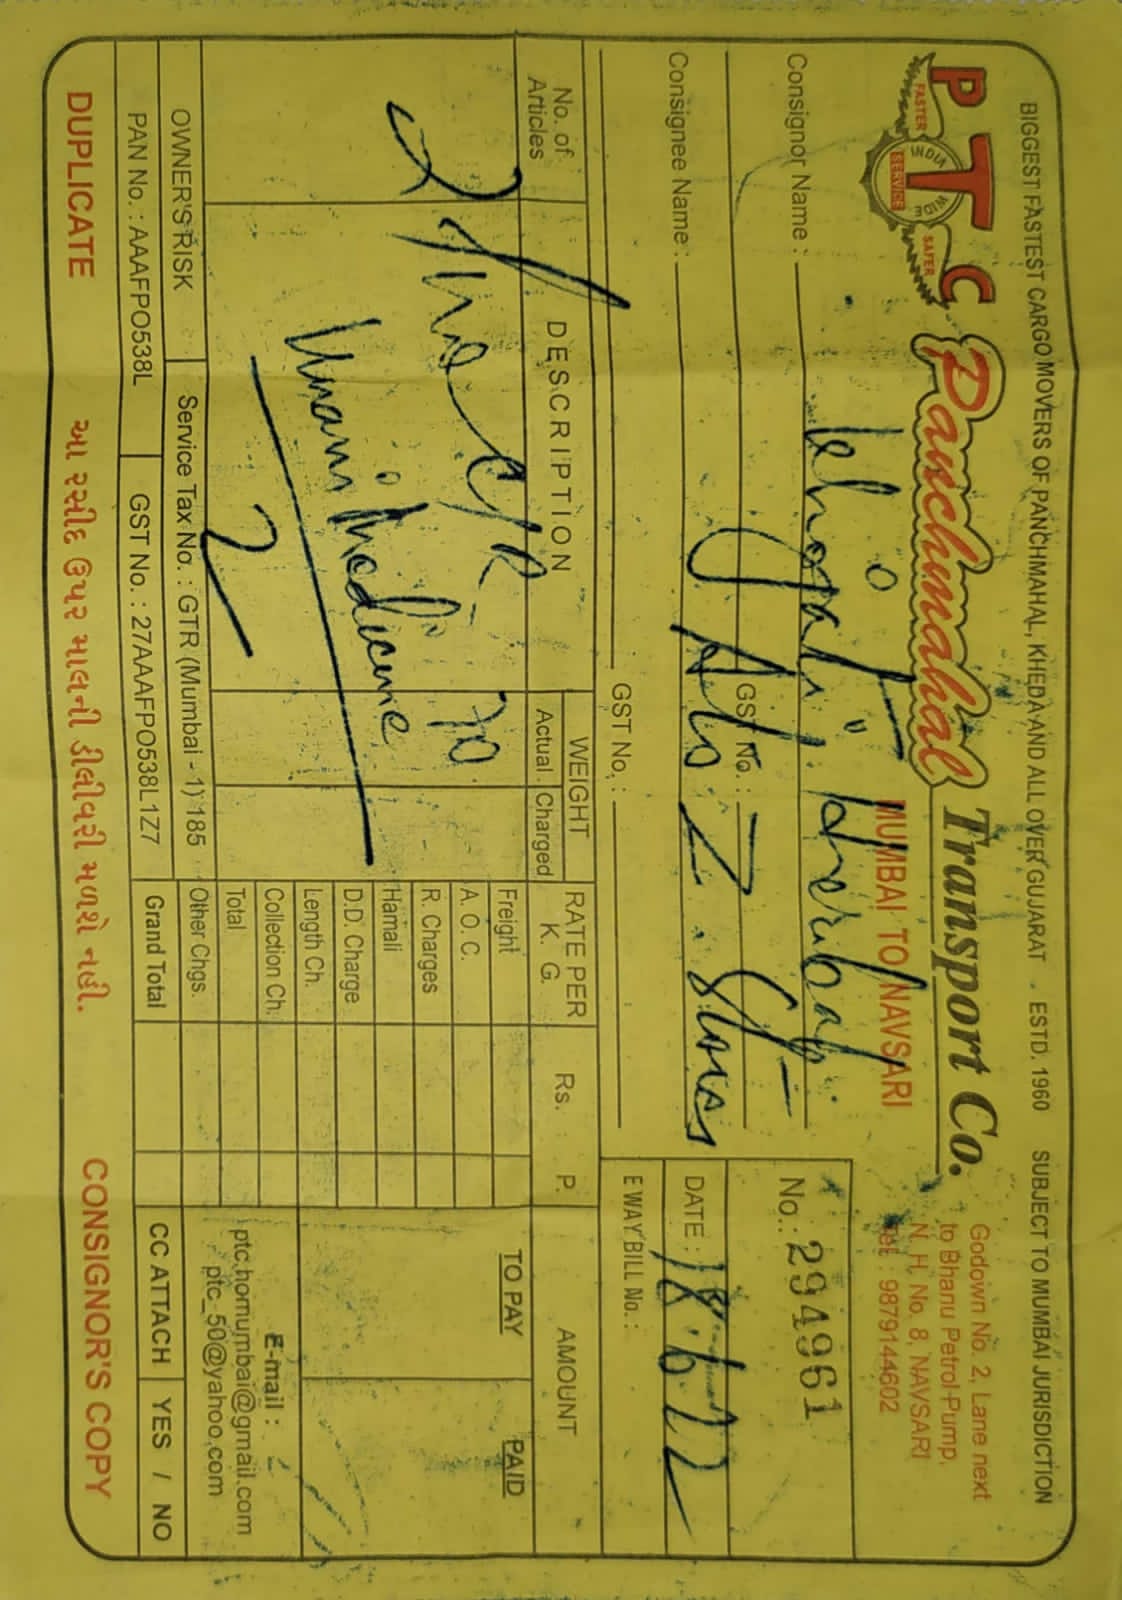 BIGGEST FASTEST CARGO MOVERS OF PANCHMAHAL, KHEDA AND ALL OVER GUJARAT . ESTD. 1960 SUBJECT TO MUMBAI JURISDICTION
P T C
FASTER
INDIA WIDE
SERVICE
SAFER
Panchmahal Transport Co.
MUMBAI TO NAVSARI
Godown No. 2, Lane next
to Bhanu Petrol Pump,
N. H. No. 8, NAVSARI
Tel : 9879144602
Consignor Name :
GST No. :
No.: 294961
Consignee Name : A to Z Stores
DATE : 18.6.22
GST No. :
E WAY BILL No. :
No. of Articles
DESCRIPTION
WEIGHT
Actual Charged
RATE PER K. G.
Rs. P.
AMOUNT
TO PAY PAID
2 The C/R 70
Unani Medicine
2
Freight
A. O. C.
R. Charges
Hamali
D.D. Charge
Length Ch.
Collection Ch.
Total
Other Chgs.
Grand Total
E-mail :
ptc.homumbai@gmail.com
ptc_50@yahoo.com
OWNER'S RISK Service Tax No. : GTR (Mumbai - 1) 185
PAN No. : AAAFPO538L GST No. : 27AAAFPO538L1Z7
CC ATTACH YES / NO
DUPLICATE આ રસીદ ઉપર માલની ડીલીવરી મળશે નહી. CONSIGNOR'S COPY